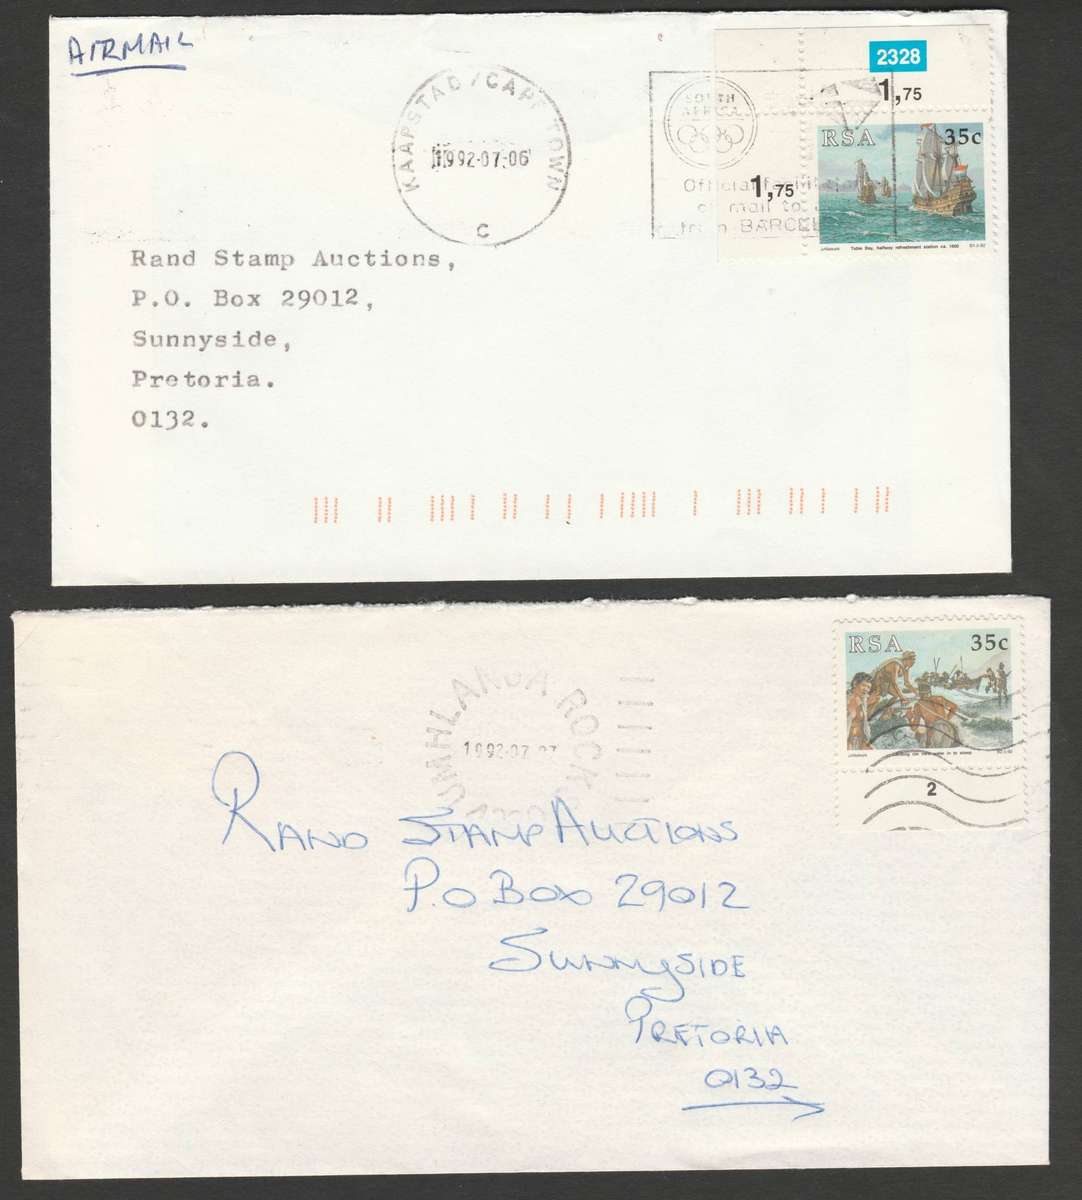 AIRMAIL
KAAPSTAD/CAPE TOWN
1992-07-06
C
SOUTH
AFRICA
Official
mail to
BARCEL
2328
1,75
RSA 35c
1,75
Table Bay, halfway refreshment station ca. 1650
Rand Stamp Auctions,
P.O. Box 29012,
Sunnyside,
Pretoria.
0132.
RSA 35c
2
UMHLANGA ROCKS
1992-07
RAND STAMP AUCTIONS
P.O BOX 29012
SUNNYSIDE
PRETORIA
0132